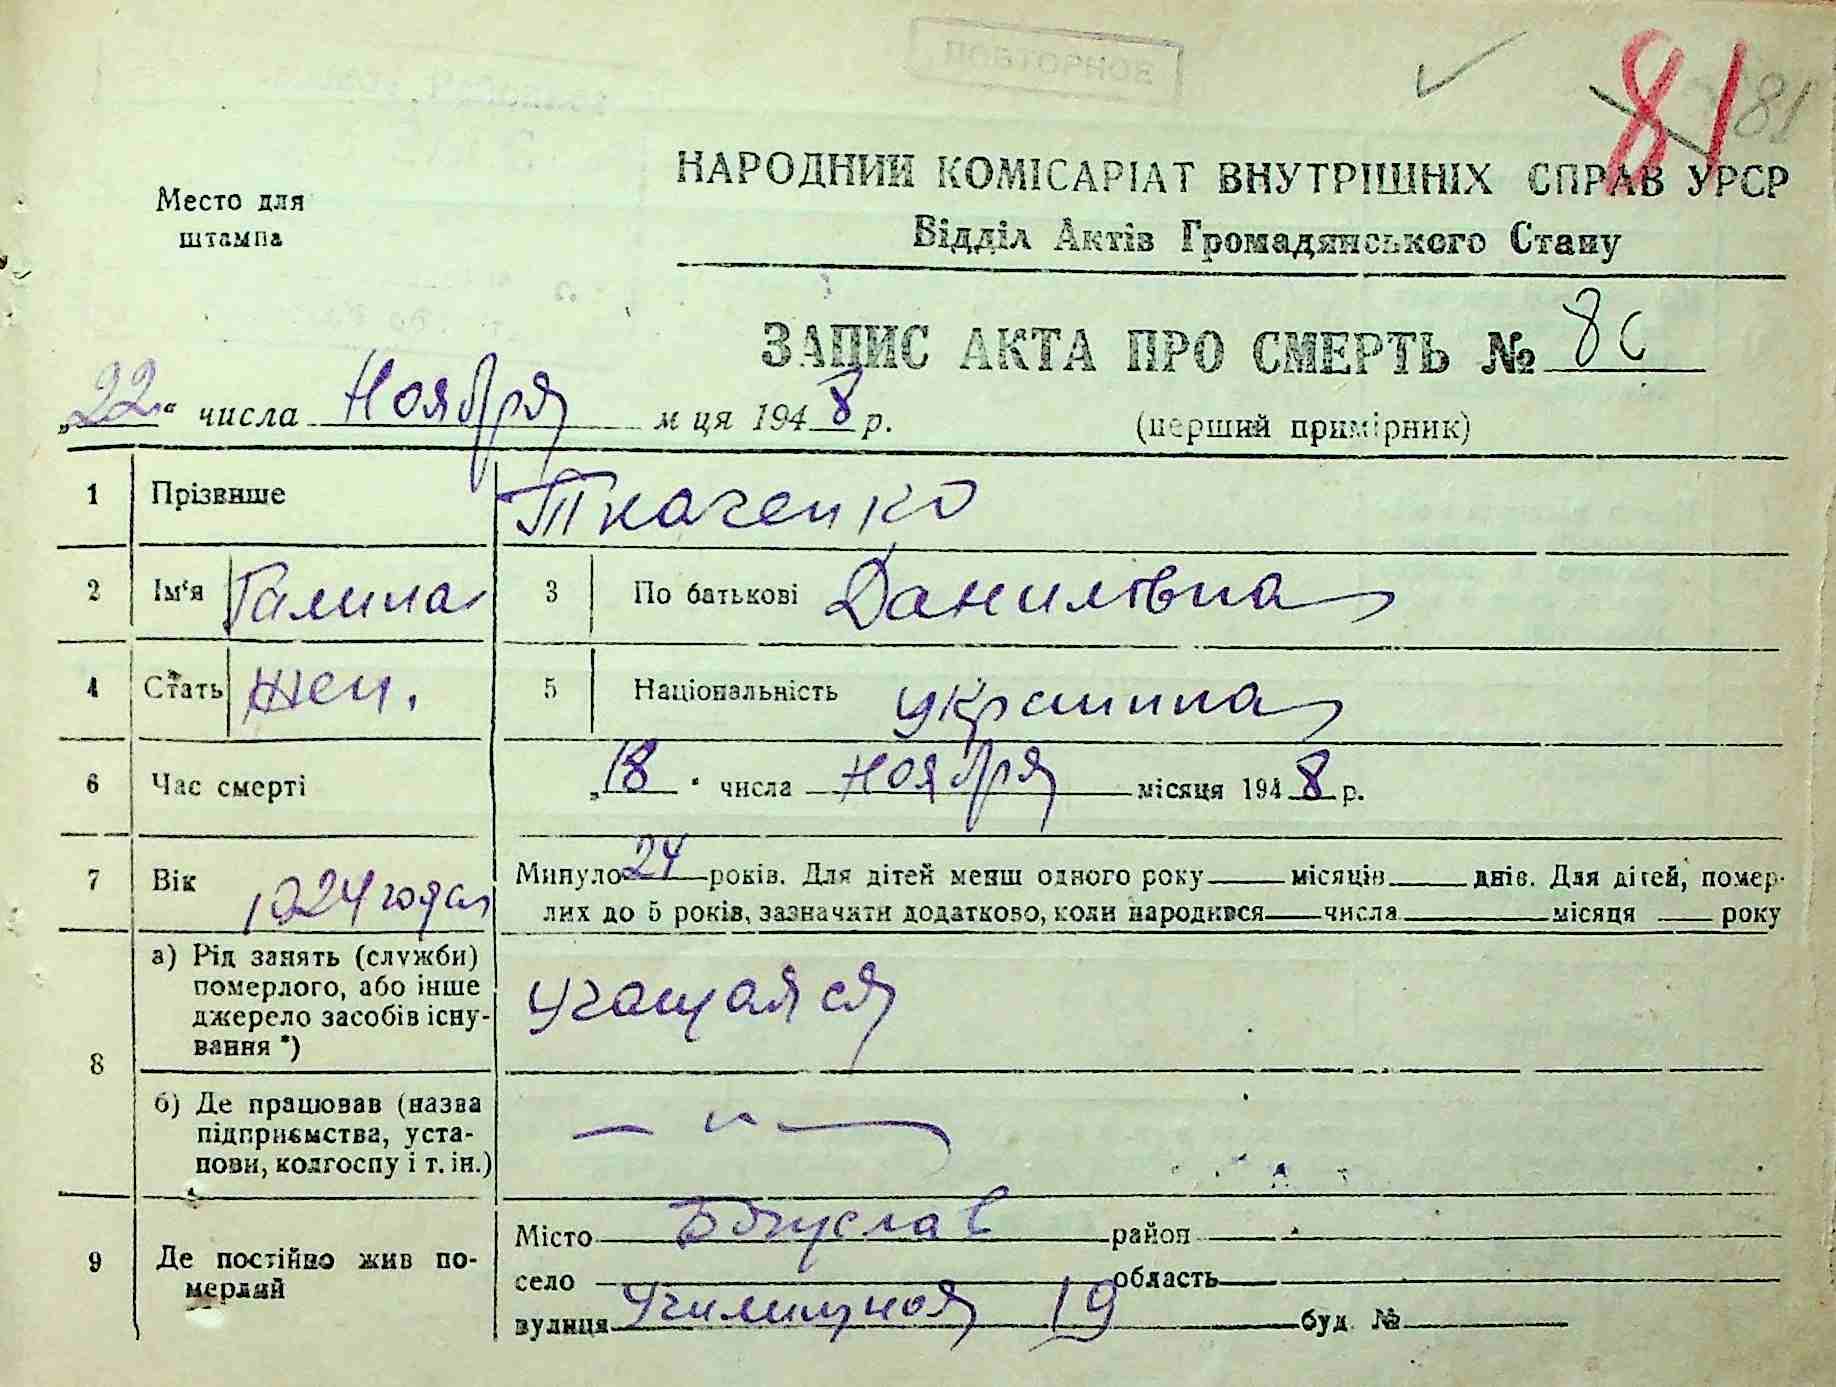 ПОВТОРНОЕ
81
81
Место для
штампа
НАРОДНИЙ КОМІСАРІАТ ВНУТРІШНІХ СПРАВ УРСР
Відділ Актів Громадянського Стану
ЗАПИС АКТА ПРО СМЕРТЬ № 80
„22“ числа Ноября м ця 1948 р.
(перший примірник)
1 Прізвище Ткаченко
2 Ім'я Галина 3 По батькові Даниловна
4 Стать жен. 5 Національність украинка
6 Час смерті „18“ числа ноября місяця 1948 р.
7 Вік 1924 года Минуло 24 років. Для дітей менш одного року місяців днів. Для дітей, помер-
лих до 5 років, зазначити додатково, коли народився числа місяця року
8 а) Рід занять (служби)
померлого, або інше
джерело засобів існу-
вання *)
Учащаяся
б) Де працював (назва
підприємства, уста-
нови, колгоспу і т. ін.)
— " —
9 Де постійно жив по-
мерлий
Місто Богуслав район
село область
вулиця Училищная 19 буд. №